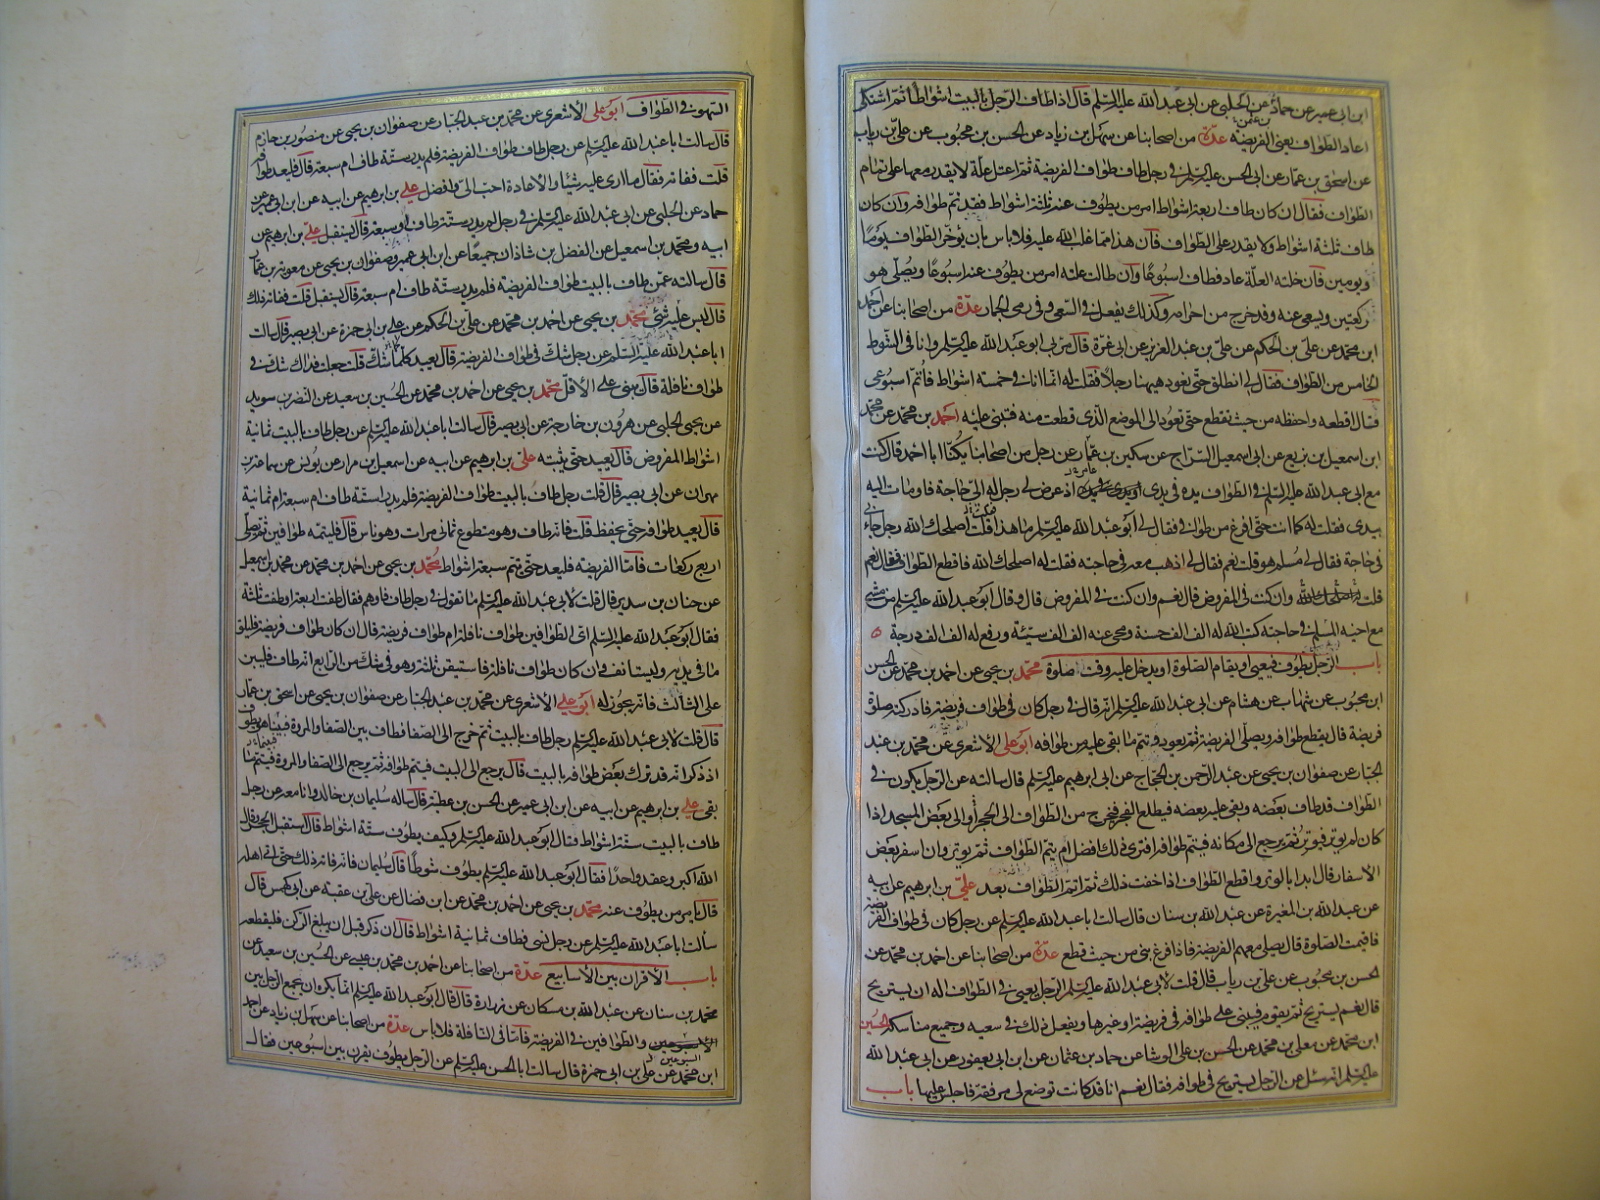 ابن ابى عمير عن حماد عن الحلبى عن ابى عبد الله عليه السلم قال اذا طاف الرجل بالبيت اشواطا ثم اشتكى
اعاد الطواف يعنى الفريضه عدة من اصحابنا عن سهل بن زياد عن الحسن بن محبوب عن على بن رياب
عن اسحق بن عمار عن ابى الحسن عليه السلم فى رجل طاف طواف الفريضة ثم اعتل علة لا يقدر معها على تمام
الطواف فقال ان كان طاف اربعة اشواط امر من يطوف عنه ثلثة اشواط فقد تم طوافه وان كان
طاف ثلثة اشواط ولا يقدر على الطواف فان هذا مما غلب الله عليه فلا باس بان يوخر الطواف يوما
ويومين فان خلته العلة عاد فطاف اسبوعا وان طالت علته امر من يطوف عنه اسبوعا ويصلى هو
ركعتين ويسعى عنه وقد خرج من احرامه وكذلك يفعل فى السعى وفى رمى الجمار عدة من اصحابنا عن احمد
ابن محمد عن على بن الحكم عن على بن عبد العزيز عن ابى غرة قال مر بى ابو عبد الله عليه السلم وانا فى الشوط
الخامس من الطواف فقال لى انطلق حتى نعود هيهنا رجلا فقلت له انما انا فى خمسة اشواط فاتم اسبوعى
فقال اقطعه واحفظه من حيث تقطع حتى تعود الى الموضع الذى قطعت منه فتبنى عليه احمد بن محمد عن محمد
ابن اسمعيل بن بزيع عن ابى اسمعيل السراج عن سكين بن عمار عن رجل من اصحابنا يكنا ابا احمد قال كنت
مع ابى عبد الله عليه السلم فى الطواف يده فى يدى اذ عرض لى رجل له الى حاجة فاومات اليه
بيدى فقلت له كما انت حتى افرغ من طوافى فقال لى ابو عبد الله عليه السلم ما هذا فقلت اصلحك الله رجل جاءنى
فى حاجة فقال لى مسلم هو قلت نعم فقال لى اذهب معه فى حاجته فقلت له اصلحك الله فاقطع الطواف فقال نعم
قلت وان كنت فى المفروض قال نعم وان كنت فى المفروض قال وقال ابو عبد الله عليه السلم من مشى
مع اخيه المسلم فى حاجته كتب الله له الف الف حسنة ومحى عنه الف الف سيئة ورفع له الف الف درجة
باب الرجل يطوف فيعيى او يقام الصلوة او يدخل عليه وقت الصلوة محمد بن يحيى عن احمد بن محمد عن الحسن
ابن محبوب عن شهاب عن هشام عن ابى عبد الله عليه السلم انه قال فى رجل كان فى طواف فريضة فادركته صلوة
فريضة قال يقطع طوافه ويصلى الفريضة ثم يعود ويتم ما بقى عليه من طوافه ابو على الاشعرى عن محمد بن عبد
الجبار عن صفوان بن يحيى عن عبد الرحمن بن الحجاج عن ابى ابرهيم عليه السلم قال سالته عن الرجل يكون فى
الطواف قد طاف بعضه وبقى عليه بعضه فيطلع الفجر فيخرج من الطواف الى الحجر او الى بعض المسجد اذا
كان لم يوتر فيوتر ثم يرجع الى مكانه فيتم طوافه افترى ذلك افضل ام يتم الطواف ثم يوتر وان اسفر بعض
الاسفار قال ابدا بالوتر واقطع الطواف اذا خفت ذلك ثم اتم الطواف بعد على بن ابرهيم عن ابيه
عن عبد الله بن المغيرة عن عبد الله بن سنان قال سالت ابا عبد الله عليه السلم عن رجل كان فى طواف الفريضة
فاقيمت الصلوة قال يصلى معهم الفريضة فاذا فرغ بنى من حيث قطع عدة من اصحابنا عن احمد بن محمد عن
الحسن بن محبوب عن على بن رياب قال قلت لابى عبد الله عليه السلم الرجل يعيى فى الطواف اله ان يستريح
قال نعم يستريح ثم يقوم فيبنى على طوافه فى فريضة او غيرها ويفعل ذلك فى سعيه وجميع مناسكه الحسين
ابن محمد عن معلى بن محمد عن الحسن بن على الوشا عن حماد بن عثمان عن ابن ابى يعفور عن ابى عبد الله
عليه السلم انه سئل عن الرجل يستريح فى طوافه فقال نعم انا قد كانت توضع لى مرفقة فاجلس عليها باب
السهو فى الطواف ابو على الاشعرى عن محمد بن عبد الجبار عن صفوان بن يحيى عن منصور بن حازم
قال سالت ابا عبد الله عليه السلم عن رجل طاف طواف الفريضة فلم يدر ستة طاف ام سبعة قال فليعد طوافه
قلت ففاته فقال ما ارى عليه شيئا والاعادة احب الى وافضل على بن ابرهيم عن ابيه عن ابن ابى عمير عن
حماد عن الحلبى عن ابى عبد الله عليه السلم فى رجل لم يدر ستة طاف او سبعة قال يستقبل على بن ابرهيم عن
ابيه ومحمد بن اسمعيل عن الفضل بن شاذان جميعا عن ابن ابى عمير وصفوان بن يحيى عن معوية بن عمار
قال سالته عمن طاف بالبيت طواف الفريضة فلم يدر ستة طاف ام سبعة قال يستقبل قلت ففاته ذلك
قال ليس عليه شئ محمد بن يحيى عن احمد بن محمد عن على بن الحكم عن على بن ابى حمزة عن ابى بصير قال سالت
ابا عبد الله عليه السلم عن رجل شك فى طواف الفريضة قال يعيد كلما شك قلت جعلت فداك شك فى
طواف نافلة قال يبنى على الاقل محمد بن يحيى عن احمد بن محمد عن الحسين بن سعيد عن النضر بن سويد
عن يحيى الحلبى عن هرون بن خارجة عن ابى بصير قال سالت ابا عبد الله عليه السلم عن رجل طاف بالبيت ثمانية
اشواط المفروض قال يعيد حتى يثبته على بن ابرهيم عن ابيه عن اسمعيل بن مرار عن يونس عن سماعة بن
مهران عن ابى بصير قال قلت رجل طاف بالبيت طواف الفريضة فلم يدر استة طاف ام سبعة ام ثمانية
قال يعيد طوافه حتى يحفظ قلت فانه طاف وهو متطوع ثمانى مرات وهو ناس قال فليتمه طوافين ثم يصلى
اربع ركعات فاما الفريضه فليعد حتى يتم سبعة اشواط محمد بن يحيى عن احمد بن محمد عن محمد بن اسمعيل
عن حنان بن سدير قال قلت لابى عبد الله عليه السلم ما تقول فى رجل طاف فاوهم فقال طفت اربعة او طفت ثلثة
فقال ابو عبد الله عليه السلم اى الطوافين طواف نافلة ام طواف فريضة قال ان كان طواف فريضة فليلق
ما فى يديه وليستانف وان كان طواف نافلة فاستيقن ثلثة وهو فى شك من الرابع انه طاف فليبن
على الثالث فانه يجوز له ابو على الاشعرى عن محمد بن عبد الجبار عن صفوان بن يحيى عن اسحق بن عمار
قال قلت لابى عبد الله عليه السلم رجل طاف بالبيت ثم خرج الى الصفا فطاف بين الصفا والمروة فبينا هو يطوف
اذ ذكر انه قد ترك بعض طوافه بالبيت قال يرجع الى البيت فيتم طوافه ثم يرجع الى الصفا والمروة فيتم ما
بقى على بن ابرهيم عن ابيه عن ابن ابى عمير عن الحسن بن عطية قال ساله سليمان بن خالد وانا معه عن رجل
طاف بالبيت ستة اشواط فقال ابو عبد الله عليه السلم وكيف يطوف ستة اشواط قال استقبل الحجر فقال
الله اكبر وعقد واحدا فقال ابو عبد الله عليه السلم يطوف شوطا قال سليمان فانه فاته ذلك حتى اتى اهله
قال يامر من يطوف عنه محمد بن يحيى عن احمد بن محمد عن ابن فضال عن على بن عقبة عن ابى كهمس قال
سالت ابا عبد الله عليه السلم عن رجل نسى فطاف ثمانية اشواط قال ان ذكر قبل ان يبلغ الركن فليقطعه
باب الاقران بين الاسابيع عدة من اصحابنا عن احمد بن محمد بن عيسى عن الحسين بن سعيد عن
محمد بن سنان عن عبد الله بن مسكان عن زرارة قال قال ابو عبد الله عليه السلم انما يكره ان يجمع الرجل بين
الاسبوعين والطوافين فى الفريضة فاما فى النافلة فلا باس عدة من اصحابنا عن سهل بن زياد عن احمد
ابن محمد عن على بن ابى حمزة قال سالت ابا الحسن عليه السلم عن الرجل يطوف يقرن بين اسبوعين فقال